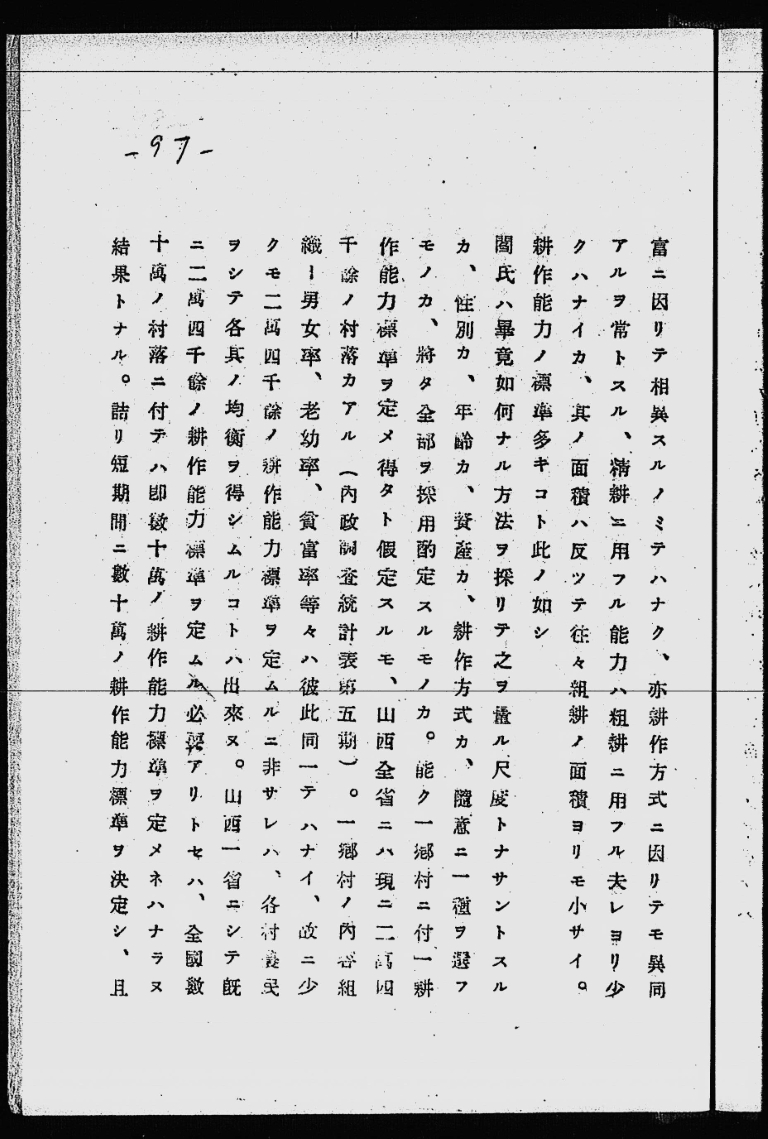 -97-
富ニ因リテ相異スルノミテハナク、亦耕作方式ニ因リテモ異同
アルヲ常トスル、精耕ニ用フル能力ハ粗耕ニ用フル夫レヨリ少
クハナイカ、其ノ面積ハ反ツテ往々粗耕ノ面積ヨリモ小サイ。
耕作能力ノ標準多キコト此ノ如シ
閻氏ハ畢竟如何ナル方法ヲ採リテ之ヲ量ル尺度トナサントスル
カ、性別カ、年齢カ、資産カ、耕作方式カ、隨意ニ一種ヲ選フ
モノカ、將タ全部ヲ採用酌定スルモノカ。能ク一鄕村ニ付一耕
作能力標準ヲ定メ得タト假定スルモ、山西全省ニハ現ニ二萬四
千餘ノ村落カアル（內政調查統計表第五期）。一鄕村ノ內容組
織ー男女率、老幼率、貧富率等々ハ彼此同一テハナイ、故ニ少
クモ二萬四千餘ノ耕作能力標準ヲ定ムルニ非サレハ、各村農民
ヲシテ各其ノ均衡ヲ得シムルコトハ出來ヌ。山西一省ニシテ既
ニ二萬四千餘ノ耕作能力標準ヲ定ムル必要アリトセハ、全國數
十萬ノ村落ニ付テハ卽數十萬ノ耕作能力標準ヲ定メネハナラヌ
結果トナル。詰リ短期間ニ數十萬ノ耕作能力標準ヲ決定シ、且